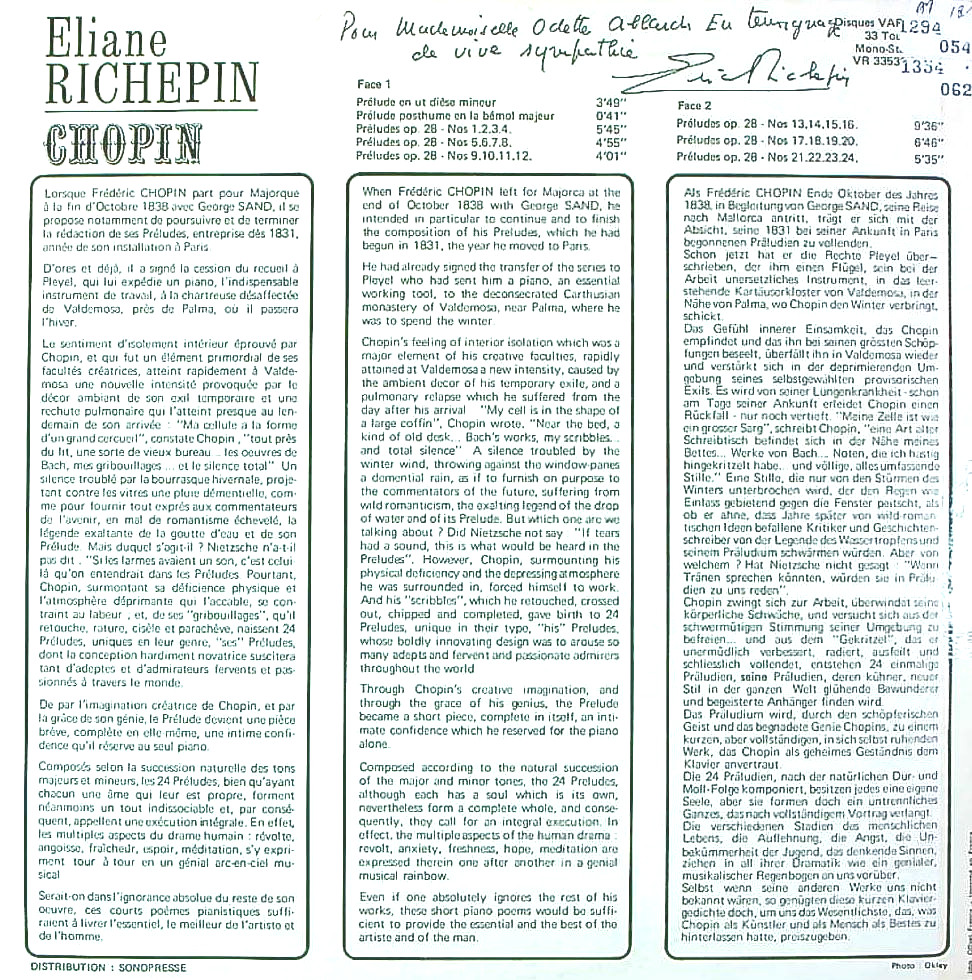 Eliane
RICHEPIN
CHOPIN
Pour Mademoiselle Odette
de vive sympathie
Disques VAFI
33 Tou
Mono-St.
VR 3353
1294
054
1334
062
Face 1
Prélude en ut dièse mineur 3'49"
Prélude posthume en la bémol majeur 0'41"
Préludes op. 28 - Nos 1.2.3.4. 5'45"
Préludes op. 28 - Nos 5.6.7.8. 4'55"
Préludes op. 28 - Nos 9.10.11.12. 4'01"
Face 2
Préludes op. 28 - Nos 13,14,15.16. 9'36"
Préludes op. 28 - Nos 17.18.19.20. 6'46"
Préludes op. 28 - Nos 21.22.23.24, 5'35"
Lorsque Frédéric CHOPIN part pour Majorque
à la fin d'Octobre 1838 avec George SAND, il se
propose notamment de poursuivre et de terminer
la rédaction de ses Préludes, entreprise dès 1831,
année de son installation à Paris
D'ores et déjà, il a signé la cession du recueil à
Pleyel, qui lui expédie un piano, l'indispensable
instrument de travail, à la chartreuse désaffectée
de Valdemosa, près de Palma, où il passera
l'hiver.
Le sentiment d'isolement intérieur éprouvé par
Chopin, et qui fut un élément primordial de ses
facultés créatrices, atteint rapidement à Valde-
mosa une nouvelle intensité provoquée par le
décor ambiant de son exil temporaire et une
rechute pulmonaire qui l'atteint presque au len-
demain de son arrivée : "Ma cellule a la forme
d'un grand cercueil", constate Chopin, "tout près
du lit, une sorte de vieux bureau... les oeuvres de
Bach, mes gribouillages ... et le silence total" Un
silence troublé par la bourrasque hivernale, proje-
tant contre les vitres une pluie démentielle, com-
me pour fournir tout exprés aux commentateurs
de l'avenir, en mal de romantisme échevelé, la
légende exaltante de la goutte d'eau et de son
Prélude. Mais duquel s'agit-il ? Nietzsche n'a-t-il
pas dit . "Si les larmes avaient un son, c'est celui-
là qu'on entendrait dans les Préludes Pourtant,
Chopin, surmontant sa déficience physique et
l'atmosphère déprimante qui l'accable, se con-
traint au labeur , et, de ses "gribouillages", qu'il
retouche, rature, cisèle et parachève, naissent 24
Préludes, uniques en leur genre, "ses" Préludes,
dont la conception hardiment novatrice suscitera
tant d'adeptes et d'admirateurs fervents et pas-
sionnés à travers le monde.
De par l'imagination créatrice de Chopin, et par
la grâce de son génie, le Prélude devient une pièce
brève, complète en elle même, une intime confi-
dence qu'il réserve au seul piano.
Composés selon la succession naturelle des tons
majeurs et mineurs, les 24 Préludes, bien qu'ayant
chacun une âme qui leur est propre, forment
néanmoins un tout indissociable et, par consé-
quent, appellent une exécution intégrale. En effet,
les multiples aspects du drame humain : révolte,
angoisse, fraîcheur, espoir, méditation, s'y expri-
ment tour à tour en un génial arc-en-ciel mu-
sical
Serait-on dans l'ignorance absolue du reste de son
oeuvre, ces courts poèmes pianistiques suffi-
raient à livrer l'essentiel, le meilleur de l'artiste et
de l'homme.
When Frédéric CHOPIN left for Majorca at the
end of October 1838 with George SAND, he
intended in particular to continue and to finish
the composition of his Preludes, which he had
begun in 1831, the year he moved to Paris.
He had already signed the transfer of the series to
Pleyel who had sent him a piano, an essential
working tool, to the deconsecrated Carthusian
monastery of Valdemosa, near Palma, where he
was to spend the winter
Chopin's feeling of interior isolation which was a
major element of his creative faculties, rapidly
attained at Valdemosa a new intensity, caused by
the ambient decor of his temporary exile, and a
pulmonary relapse which he suffered from the
day after his arrival "My cell is in the shape of
a large coffin", Chopin wrote. "Near the bed, a
kind of old desk... Bach's works, my scribbles...
and total silence" A silence troubled by the
winter wind, throwing against the window-panes
a demential rain, as if to furnish on purpose to
the commentators of the future, suffering from
wild romanticism, the exalting legend of the drop
of water and of its Prelude. But which one are we
talking about ? Did Nietzsche not say "If tears
had a sound, this is what would be heard in the
Preludes". However, Chopin, surmounting his
physical deficiency and the depressing atmosphere
he was surrounded in, forced himself to work.
And his "scribbles", which he retouched, crossed
out, chipped and completed, gave birth to 24
Preludes, unique in their type, "his" Preludes,
whose boldly innovating design was to arouse so
many adepts and fervent and passionate admirers
throughout the world
Through Chopin's creative imagination, and
through the grace of his genius, the Prelude
became a short piece, complete in itself, an inti-
mate confidence which he reserved for the piano
alone.
Composed according to the natural succession
of the major and minor tones, the 24 Preludes,
although each has a soul which is its own,
nevertheless form a complete whole, and conse-
quently, they call for an integral execution. In
effect, the multiple aspects of the human drama :
revolt, anxiety, freshness, hope, meditation are
expressed therein one after another in a genial
musical rainbow.
Even if one absolutely ignores the rest of his
works, these short piano poems would be suffi-
cient to provide the essential and the best of the
artiste and of the man.
Als Frédéric CHOPIN Ende Oktober des Jahres
1838, in Begleitung von George SAND, seine Reise
nach Mallorca antritt, trägt er sich mit der
Absicht, seine 1831 bei seiner Ankunft in Paris
begonnenen Präludien zu vollenden.
Schon jetzt hat er die Rechte Pleyel über-
schrieben, der ihm einen Flügel, sein bei der
Arbeit unersetzliches Instrument, in das leer-
stehende Kartäuserkloster von Valdemosa, in der
Nähe von Palma, wo Chopin den Winter verbringt,
schickt.
Das Gefühl innerer Einsamkeit, das Chopin
empfindet und das ihn bei seinen grössten Schöp-
fungen beseelt, überfällt ihn in Valdemosa wieder
und verstärkt sich in der deprimierenden Um-
gebung seines selbstgewählten provisorischen
Exils. Es wird von seiner Lungenkrankheit - schon
am Tage seiner Ankunft erleidet Chopin einen
Rückfall - nur noch vertieft. "Meine Zelle ist wie
ein grosser Sarg", schreibt Chopin, "eine Art alter
Schreibtisch befindet sich in der Nähe meines
Bettes... Werke von Bach... Noten, die ich hastig
hingekritzelt habe... und völlige, alles umfassende
Stille." Eine Stille, die nur von den Stürmen des
Winters unterbrochen wird, der den Regen wie
Einlass gebietend gegen die Fenster peitscht, als
ob er ahne, dass Jahre später von wild-roman-
tischen Ideen befallene Kritiker und Geschichten-
schreiber von der Legende des Wassertropfens und
seinem Präludium schwärmen würden. Aber von
welchem ? Hat Nietzsche nicht gesagt : "Wenn
Tränen sprechen könnten, würden sie in Prälu-
dien zu uns reden".
Chopin zwingt sich zur Arbeit, überwindet seine
körperliche Schwäche, und versucht sich aus der
schwermütigen Stimmung seiner Umgebung zu
befreien... und aus dem "Gekritzel", das er
unermüdlich verbessert, radiert, ausfeilt und
schliesslich vollendet, entstehen 24 einmalige
Präludien, seine Präludien, deren kühner, neuer
Stil in der ganzen Welt glühende Bewunderer
und begeisterte Anhänger finden wird.
Das Präludium wird, durch den schöpferischen
Geist und das begnadete Genie Chopins, zu einem
kurzen, aber vollständigen, in sich selbst ruhenden
Werk, das Chopin als geheimes Geständnis dem
Klavier anvertraut.
Die 24 Präludien, nach der natürlichen Dur- und
Moll-Folge komponiert, besitzen jedes eine eigene
Seele, aber sie formen doch ein untrennliches
Ganzes, das nach vollständigem Vortrag verlangt.
Die verschiedenen Stadien des menschlichen
Lebens, die Auflehnung, die Angst, die Un-
bekümmerheit der Jugend, das denkende Sinnen,
ziehen in all ihrer Dramatik wie ein genialer,
musikalischer Regenbogen an uns vorüber.
Selbst wenn seine anderen Werke uns nicht
bekannt wären, so genügten diese kurzen Klavier-
gedichte doch, um uns das Wesentlichste, das, was
Chopin als Künstler und als Mensch als Bestes zu
hinterlassen hatte, preiszugeben.
DISTRIBUTION : SONOPRESSE
Photo : Okley